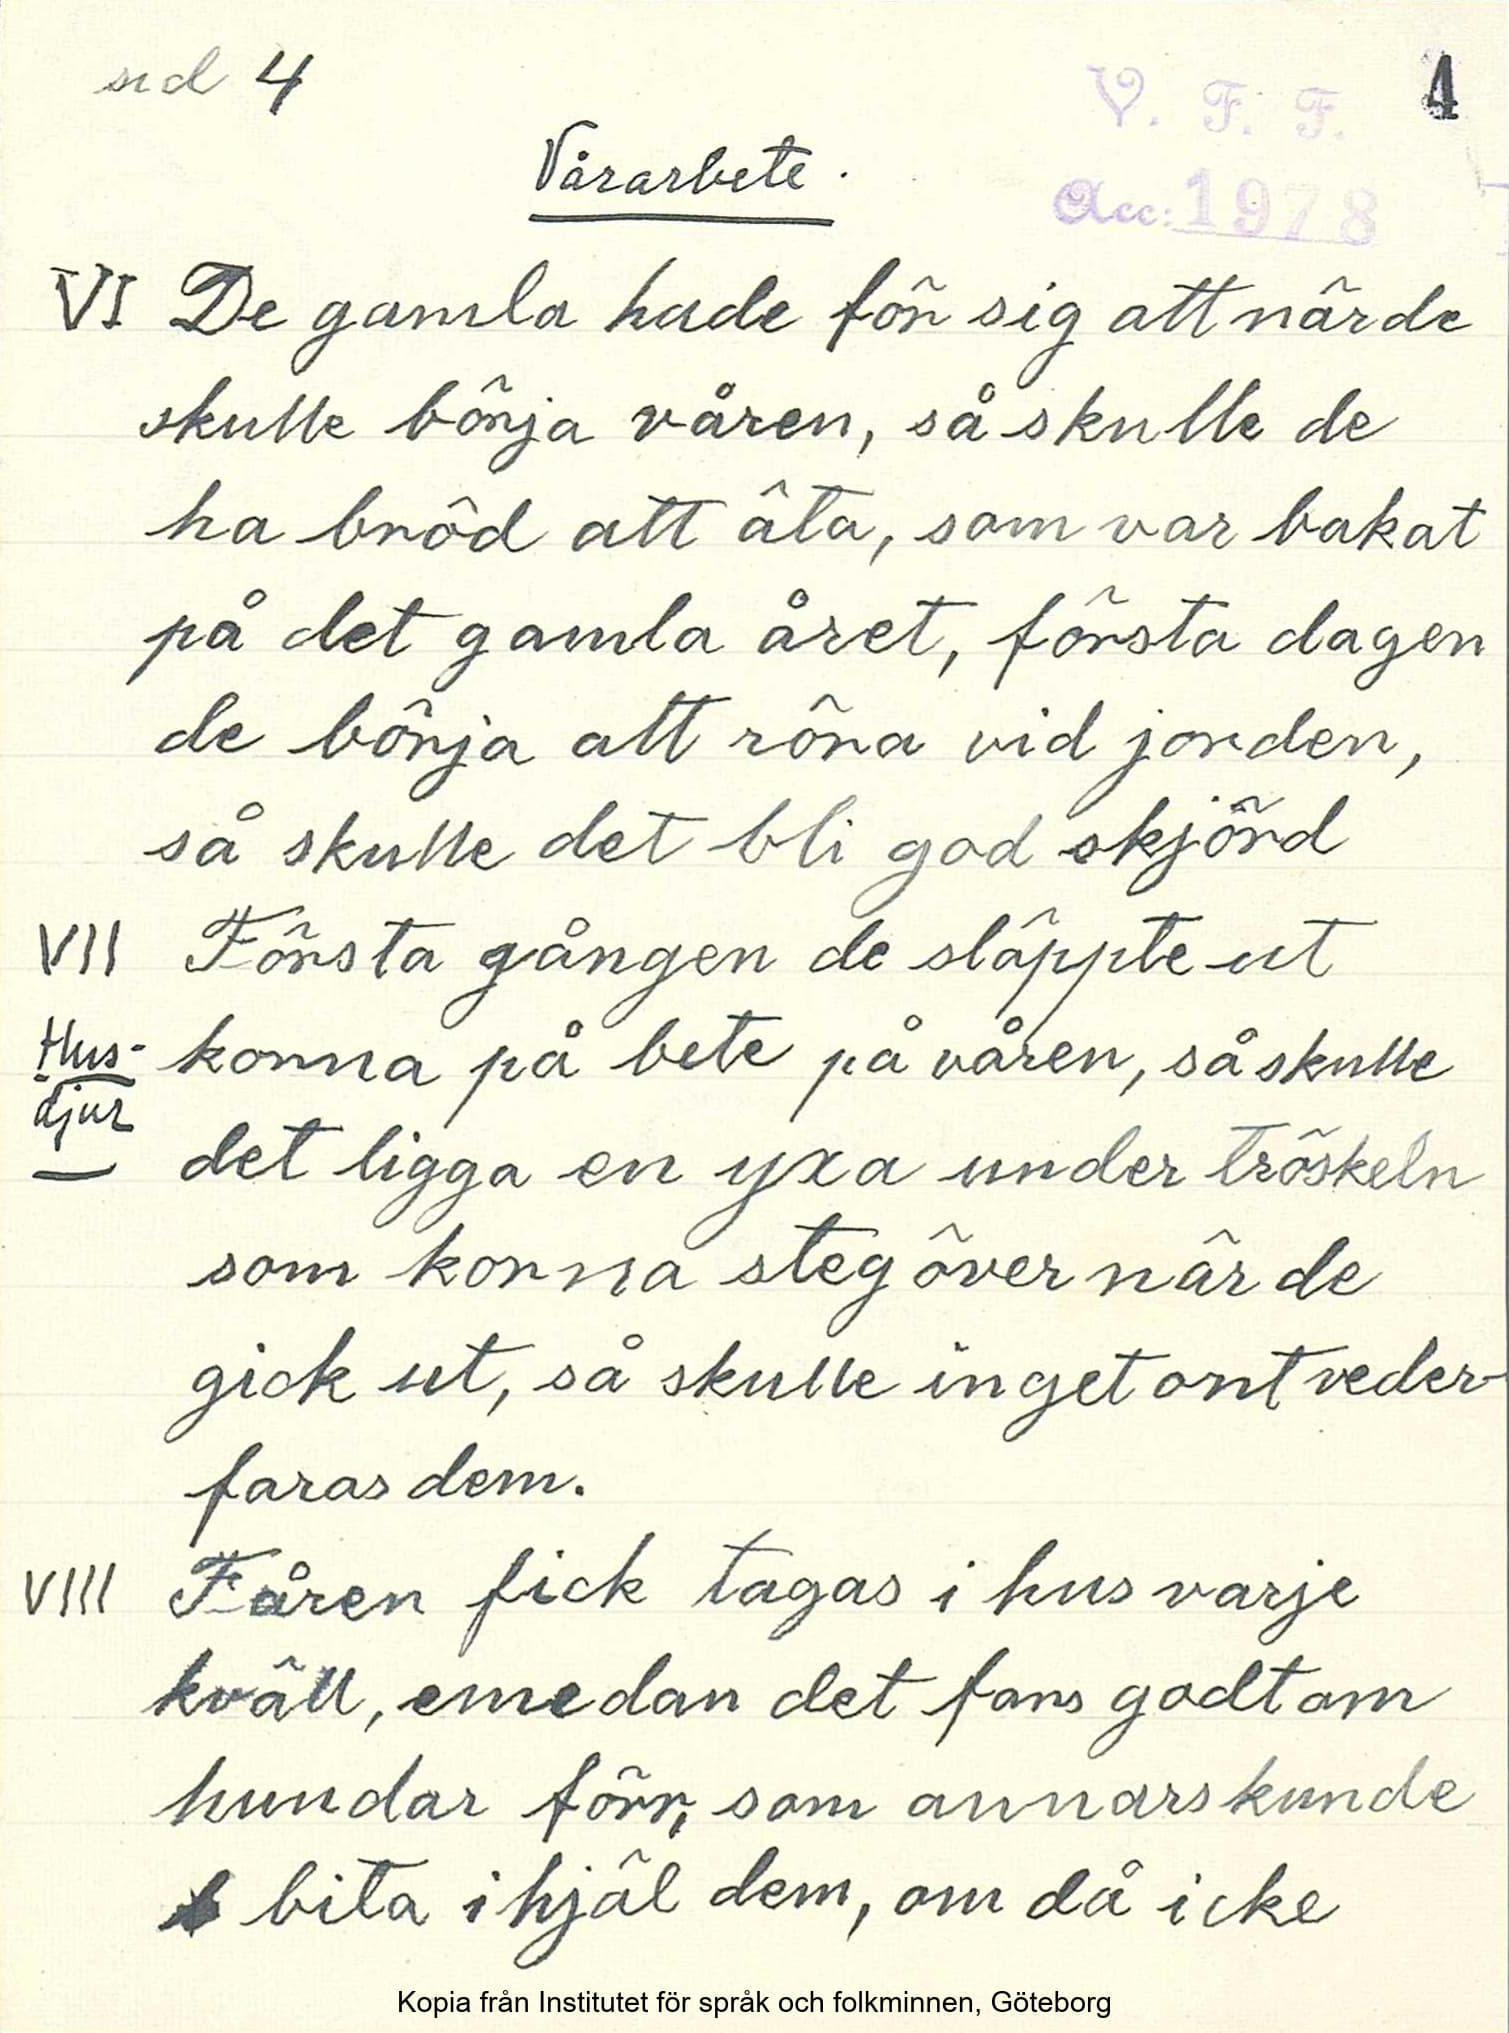 sid 4
V. F. F.
4
Vårarbete.
Acc: 1978
VI De gamla hade för sig att när de
skulle börja våren, så skulle de
ha bröd att äta, som var bakat
på det gamla året, första dagen
de börja att röra vid jorden,
så skulle det bli god skjörd
VII Första gången de släppte ut
Hus- korna på bete på våren, så skulle
djur
det ligga en yxa under tröskeln
som korna steg över när de
gick ut, så skulle inget ont veder-
faras dem.
VIII Fåren fick tagas i hus varje
kväll, emedan det fans godt om
hundar förr, som annars kunde
bita ihjäl dem, om då icke
Kopia från Institutet för språk och folkminnen, Göteborg